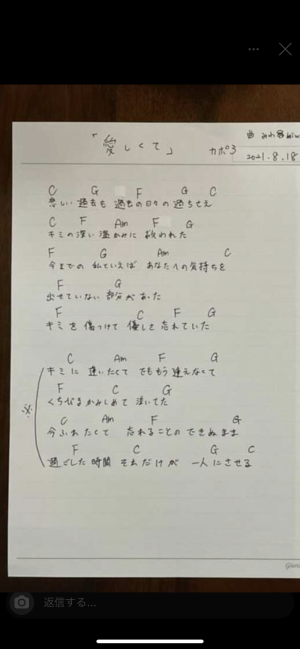 「愛しくて」
カポ3
2021.8.18
C G F G C
悲しい過去も 過去の日々の過ちさえ
C F Am F G
キミの深い温かみに救われた
F G Am C
今までの私でいえば あなたへの気持ちを
F G
出せていない部分があった
F C F G
キミを傷つけて 優しさ忘れていた
C Am F G
キミに逢いたくて でももう逢えなくて
F C G
くちびるかみしめて 泣いてた
C Am F G
今ふれたくて 忘れることのできぬまま
F C G C
過ごした時間 それだけが 一人にさせる
返信する...